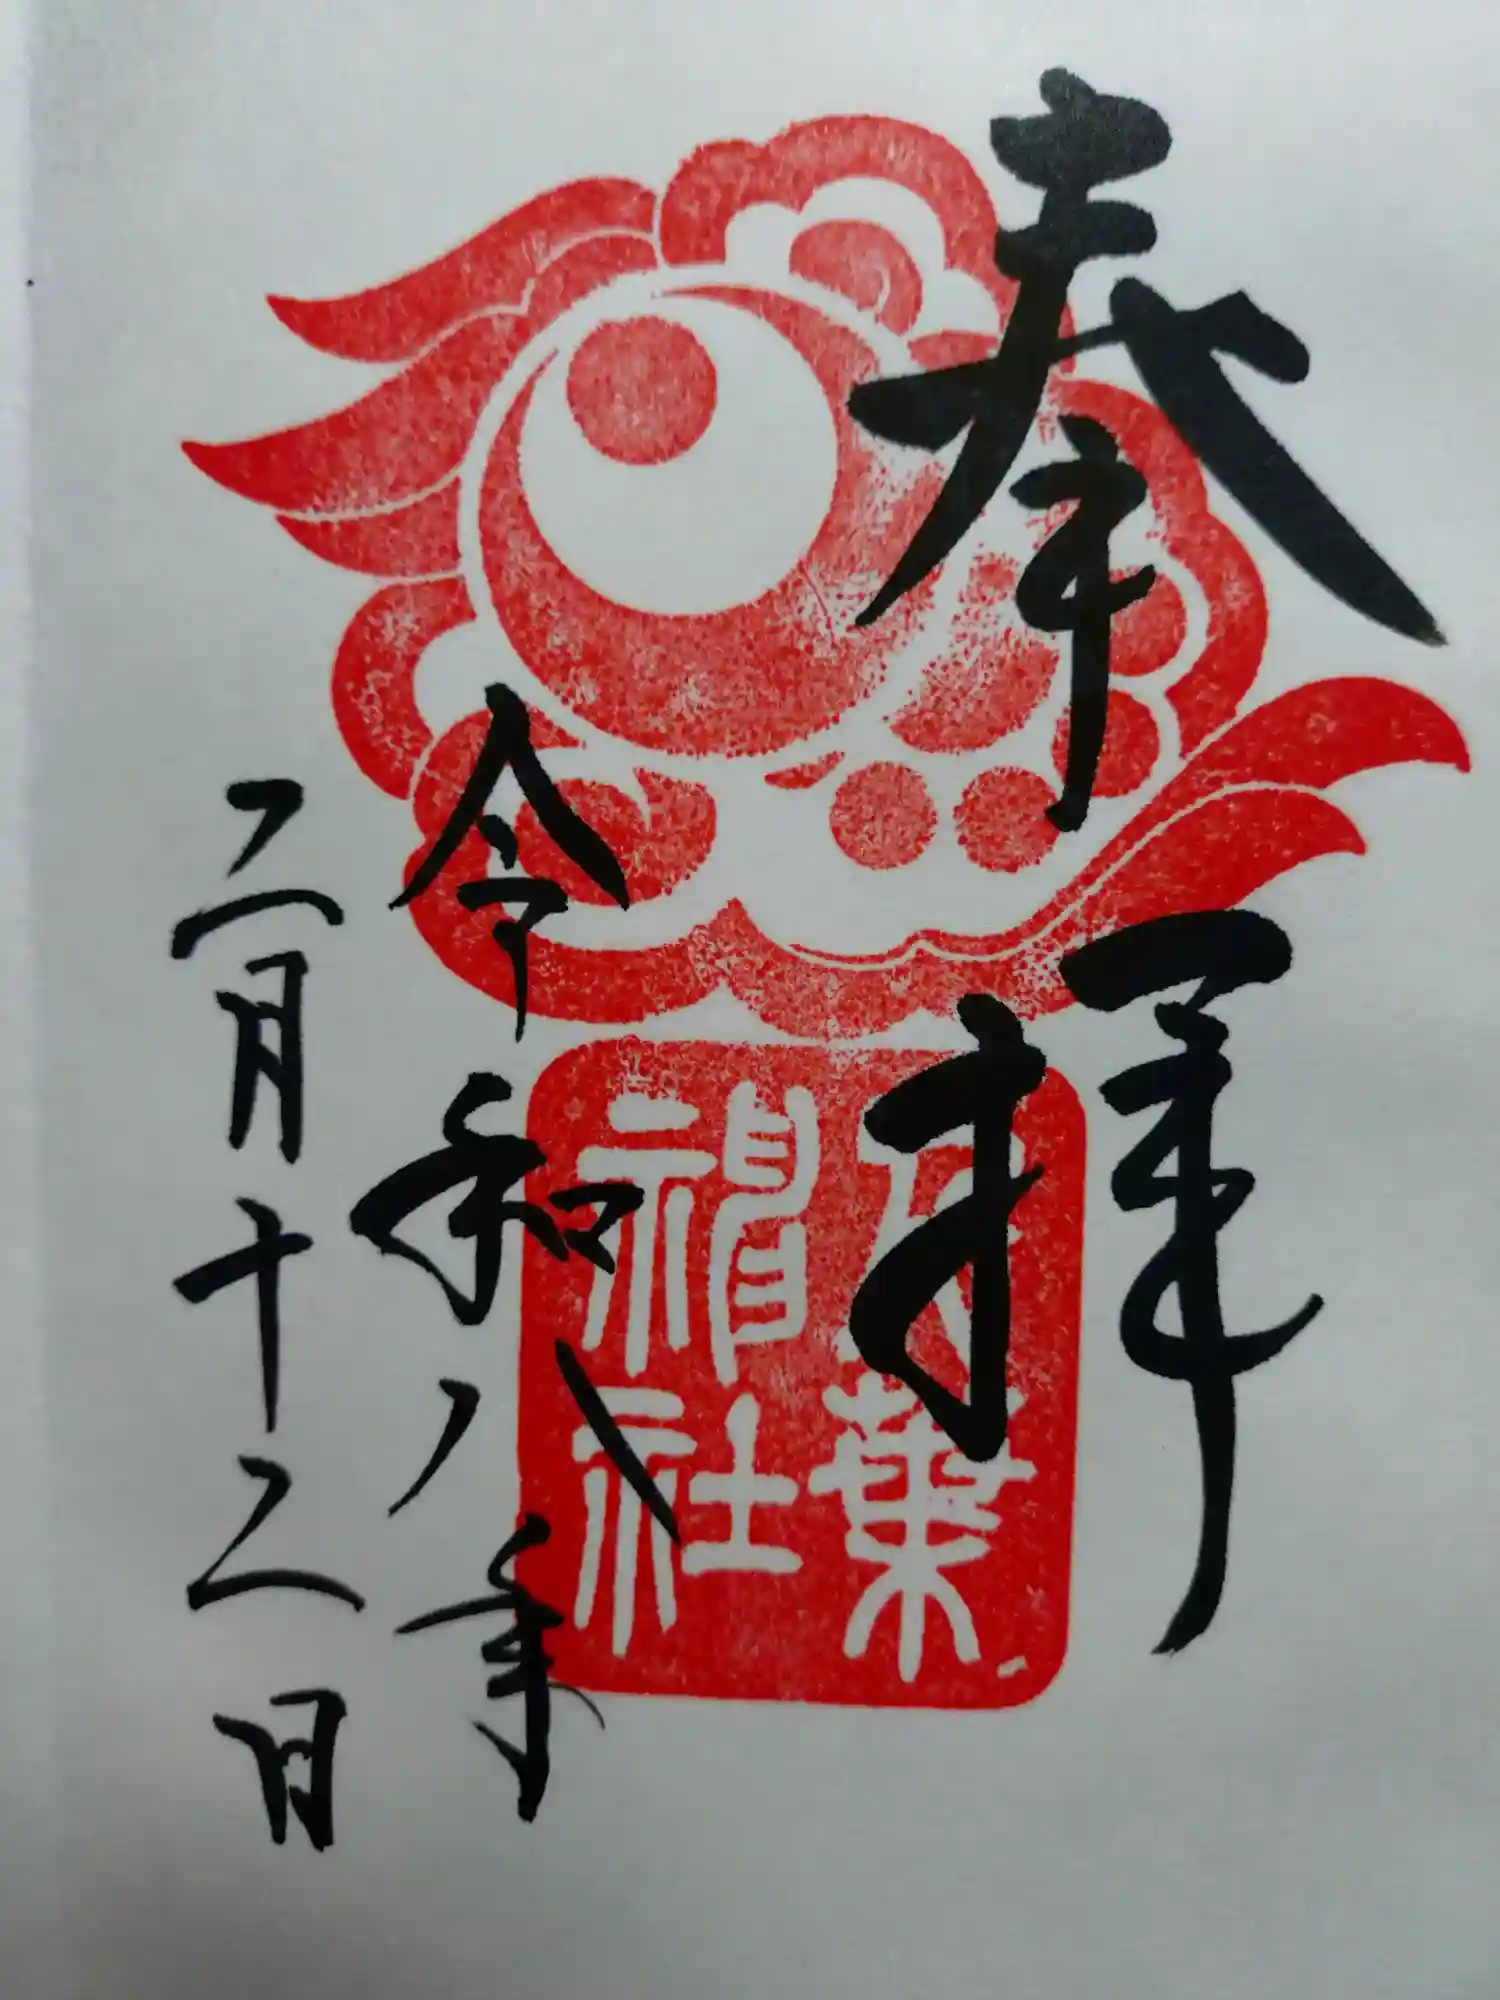 奉拝
千葉
神社
令和八年
二月十二日